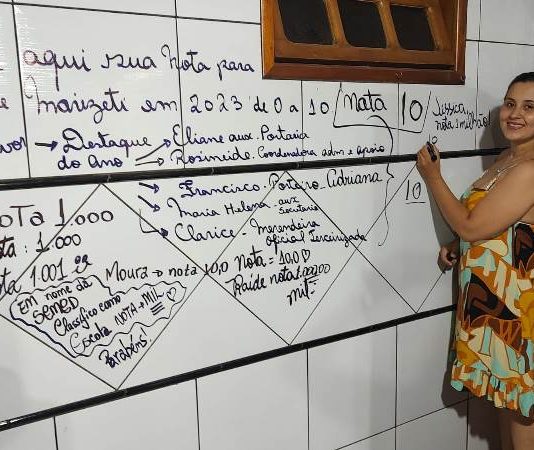 aqui sua Nota para
e Marizeti em 2023 de 0 a 10 Nata 10 Jessica nota 1 milhão
10
→ Destaque do Ano → Eliane aux. Portaria
→ Rosineide. Coordenadora adm e apoio
→ Francisco. Porteiro. Adriana 10
→ Maria Helena - aux. Secretaria
→ Clarice - Merendeira Oficial Terceirizada
NOTA 1.000
ta: 1.000
ta 1.001
Em nome da SEMED Classifico como Escola NOTA + MIL
Parabéns!
Moura → nota 10,0
Nota = 10,0 ♡
nota 1.000,00 mil